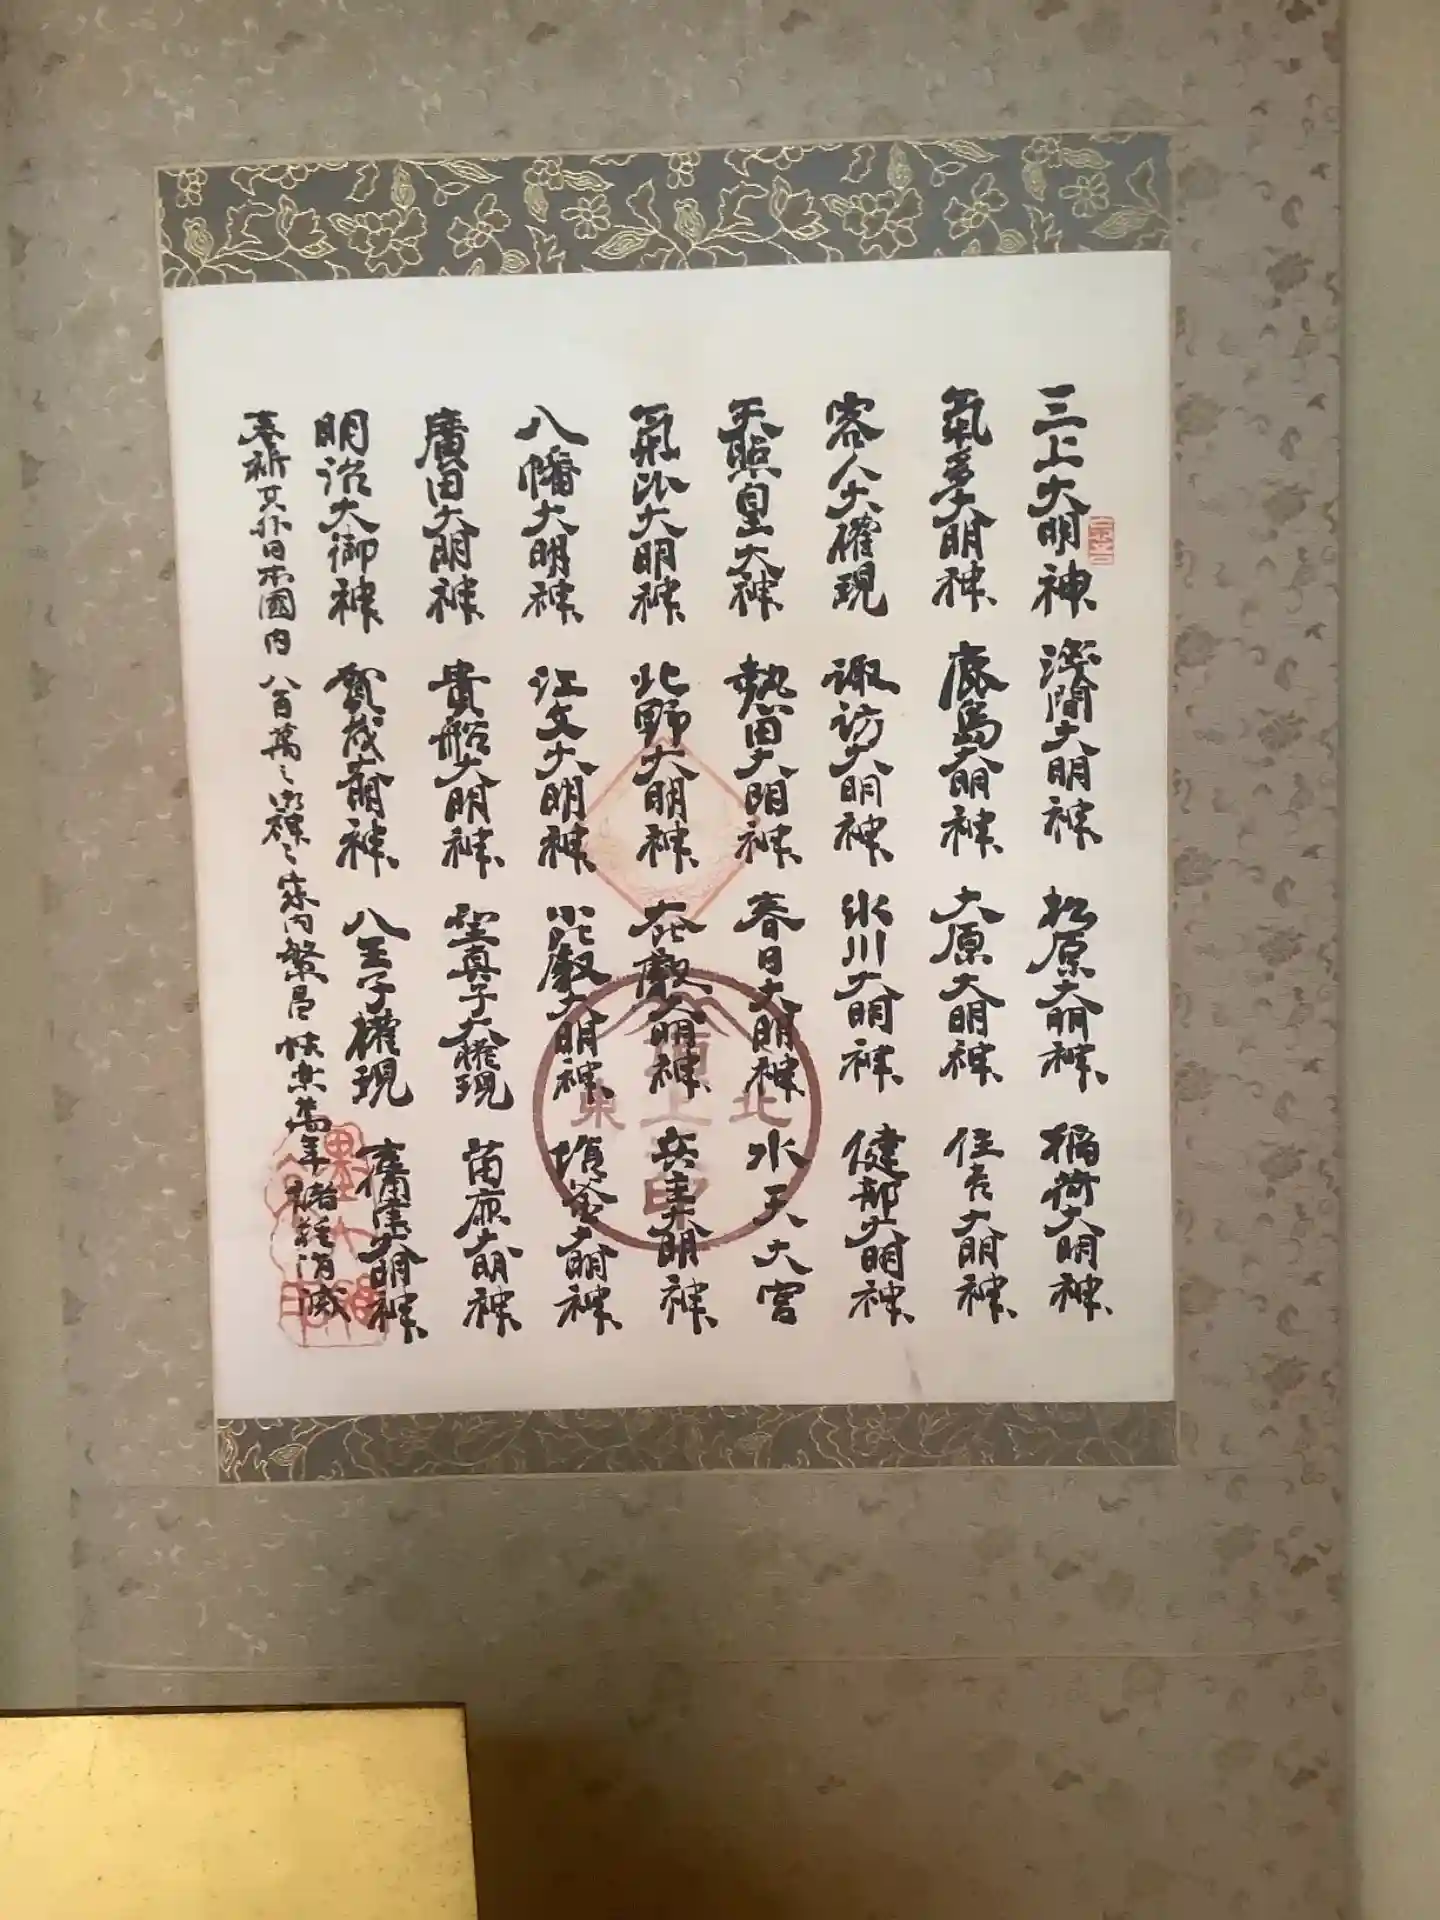 三上大明神 淺間大明神 松原大明神 稲荷大明神
氣多大明神 鹿島大明神 大原大明神 住吉大明神
客人大權現 諏訪大明神 氷川大明神 健部大明神
天照皇大神 熱田大明神 春日大明神 水天大宮
氣比大明神 北野大明神 大比叡大明神 兵主大明神
八幡大明神 江文大明神 小比叡大明神 大明神
廣田大明神 貴船大明神 聖真子大權現 苗鹿大明神
明治大御神 賀茂大明神 八王子權現 大明神
奉祈其外日本國内 八百萬之御神々 家内繁昌 快楽萬年 諸難消滅
頂上
東 北
印